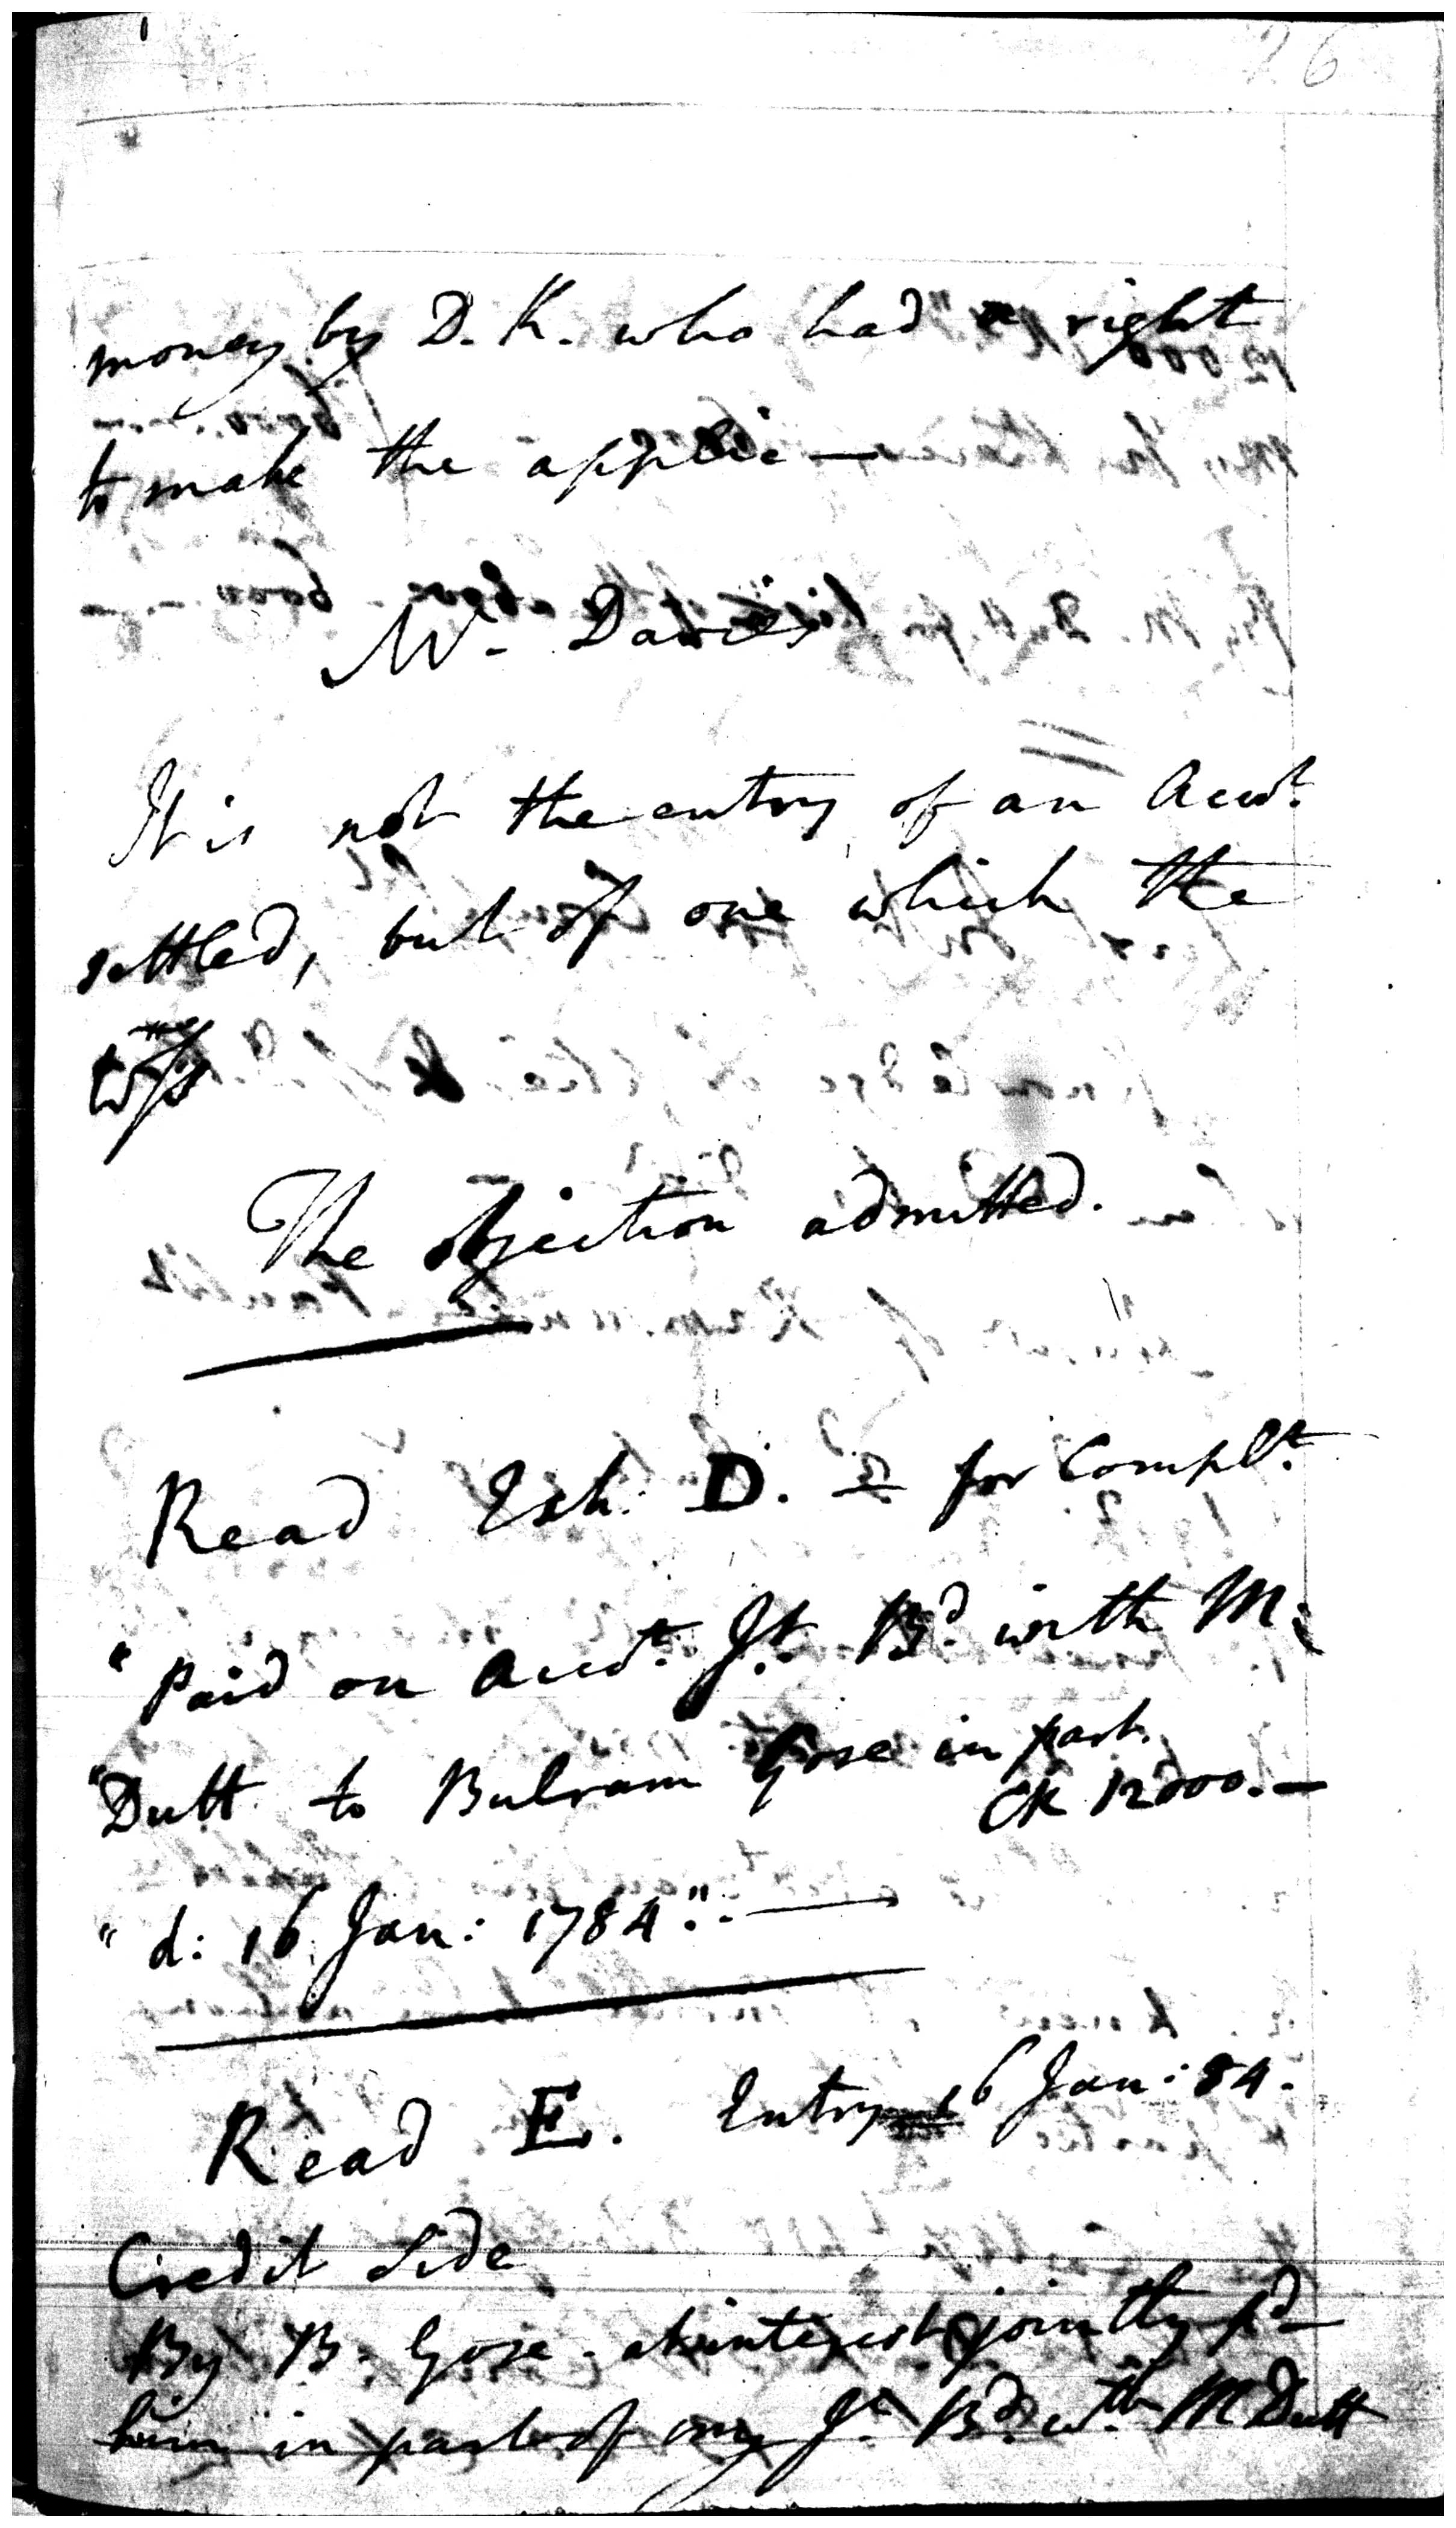 26
money by D. K. who had a right
to make the applic—
Mr. Davies
It is not the entry of an Acco.t
settled, but of one which the
The objection admitted.
Read Exh. D. for Compl.t
"Paid on Acco.t J.t B.d with M.
"Dutt to Bulram Gose in part.
CR 12000.—
"d: 16 Jan: 1784".—
Read E. Entry 16 Jan: 84.
Credit Side
By B. Gose at interest jointly p.d
him in part of my J.t B.d w.th M Dutt